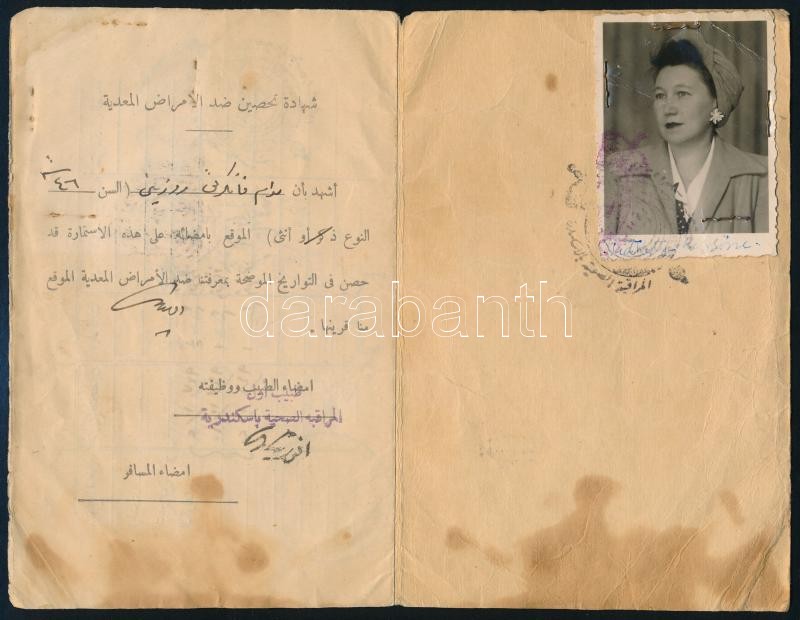 شهادة تحصين ضد الأمراض المعدية
أشهد بأن مدام (السن ٤٦
النوع ذكر او أنثى) الموقع بامضائه على هذه الاستمارة قد
حصن فى التواريخ الموضحة بمعرفتنا ضد الأمراض المعدية الموقع
منا قرينها .
امضاء الطبيب ووظيفته
طبيب اول
المراقبة الصحية باسكندرية
امضاء المسافر
المراقبة الصحية بالاسكندرية
darabanth